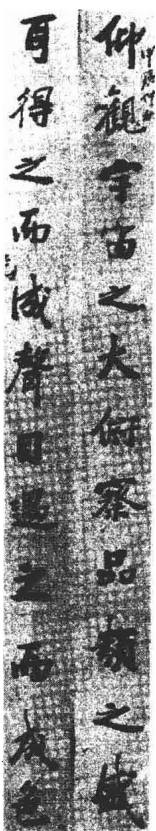 仰觀宇宙之大俯察品類之盛
耳得之而成聲目遇之而成色